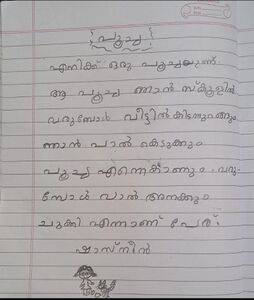 പൂച്ച
എനിക്ക് ഒരു പൂച്ചയുണ്ട്.
ആ പൂച്ച ഞാൻ സ്കൂളിൽ
വരുമ്പോൾ വീട്ടിൽ കിടന്നുറങ്ങും
ഞാൻ പാൽ കൊടുക്കും
പൂച്ച എന്നെകാണും വരു-
മ്പോൾ വാൽ അനക്കും
ചുക്കി എന്നാണ് പേര്.
ഷാസ്നീൻ